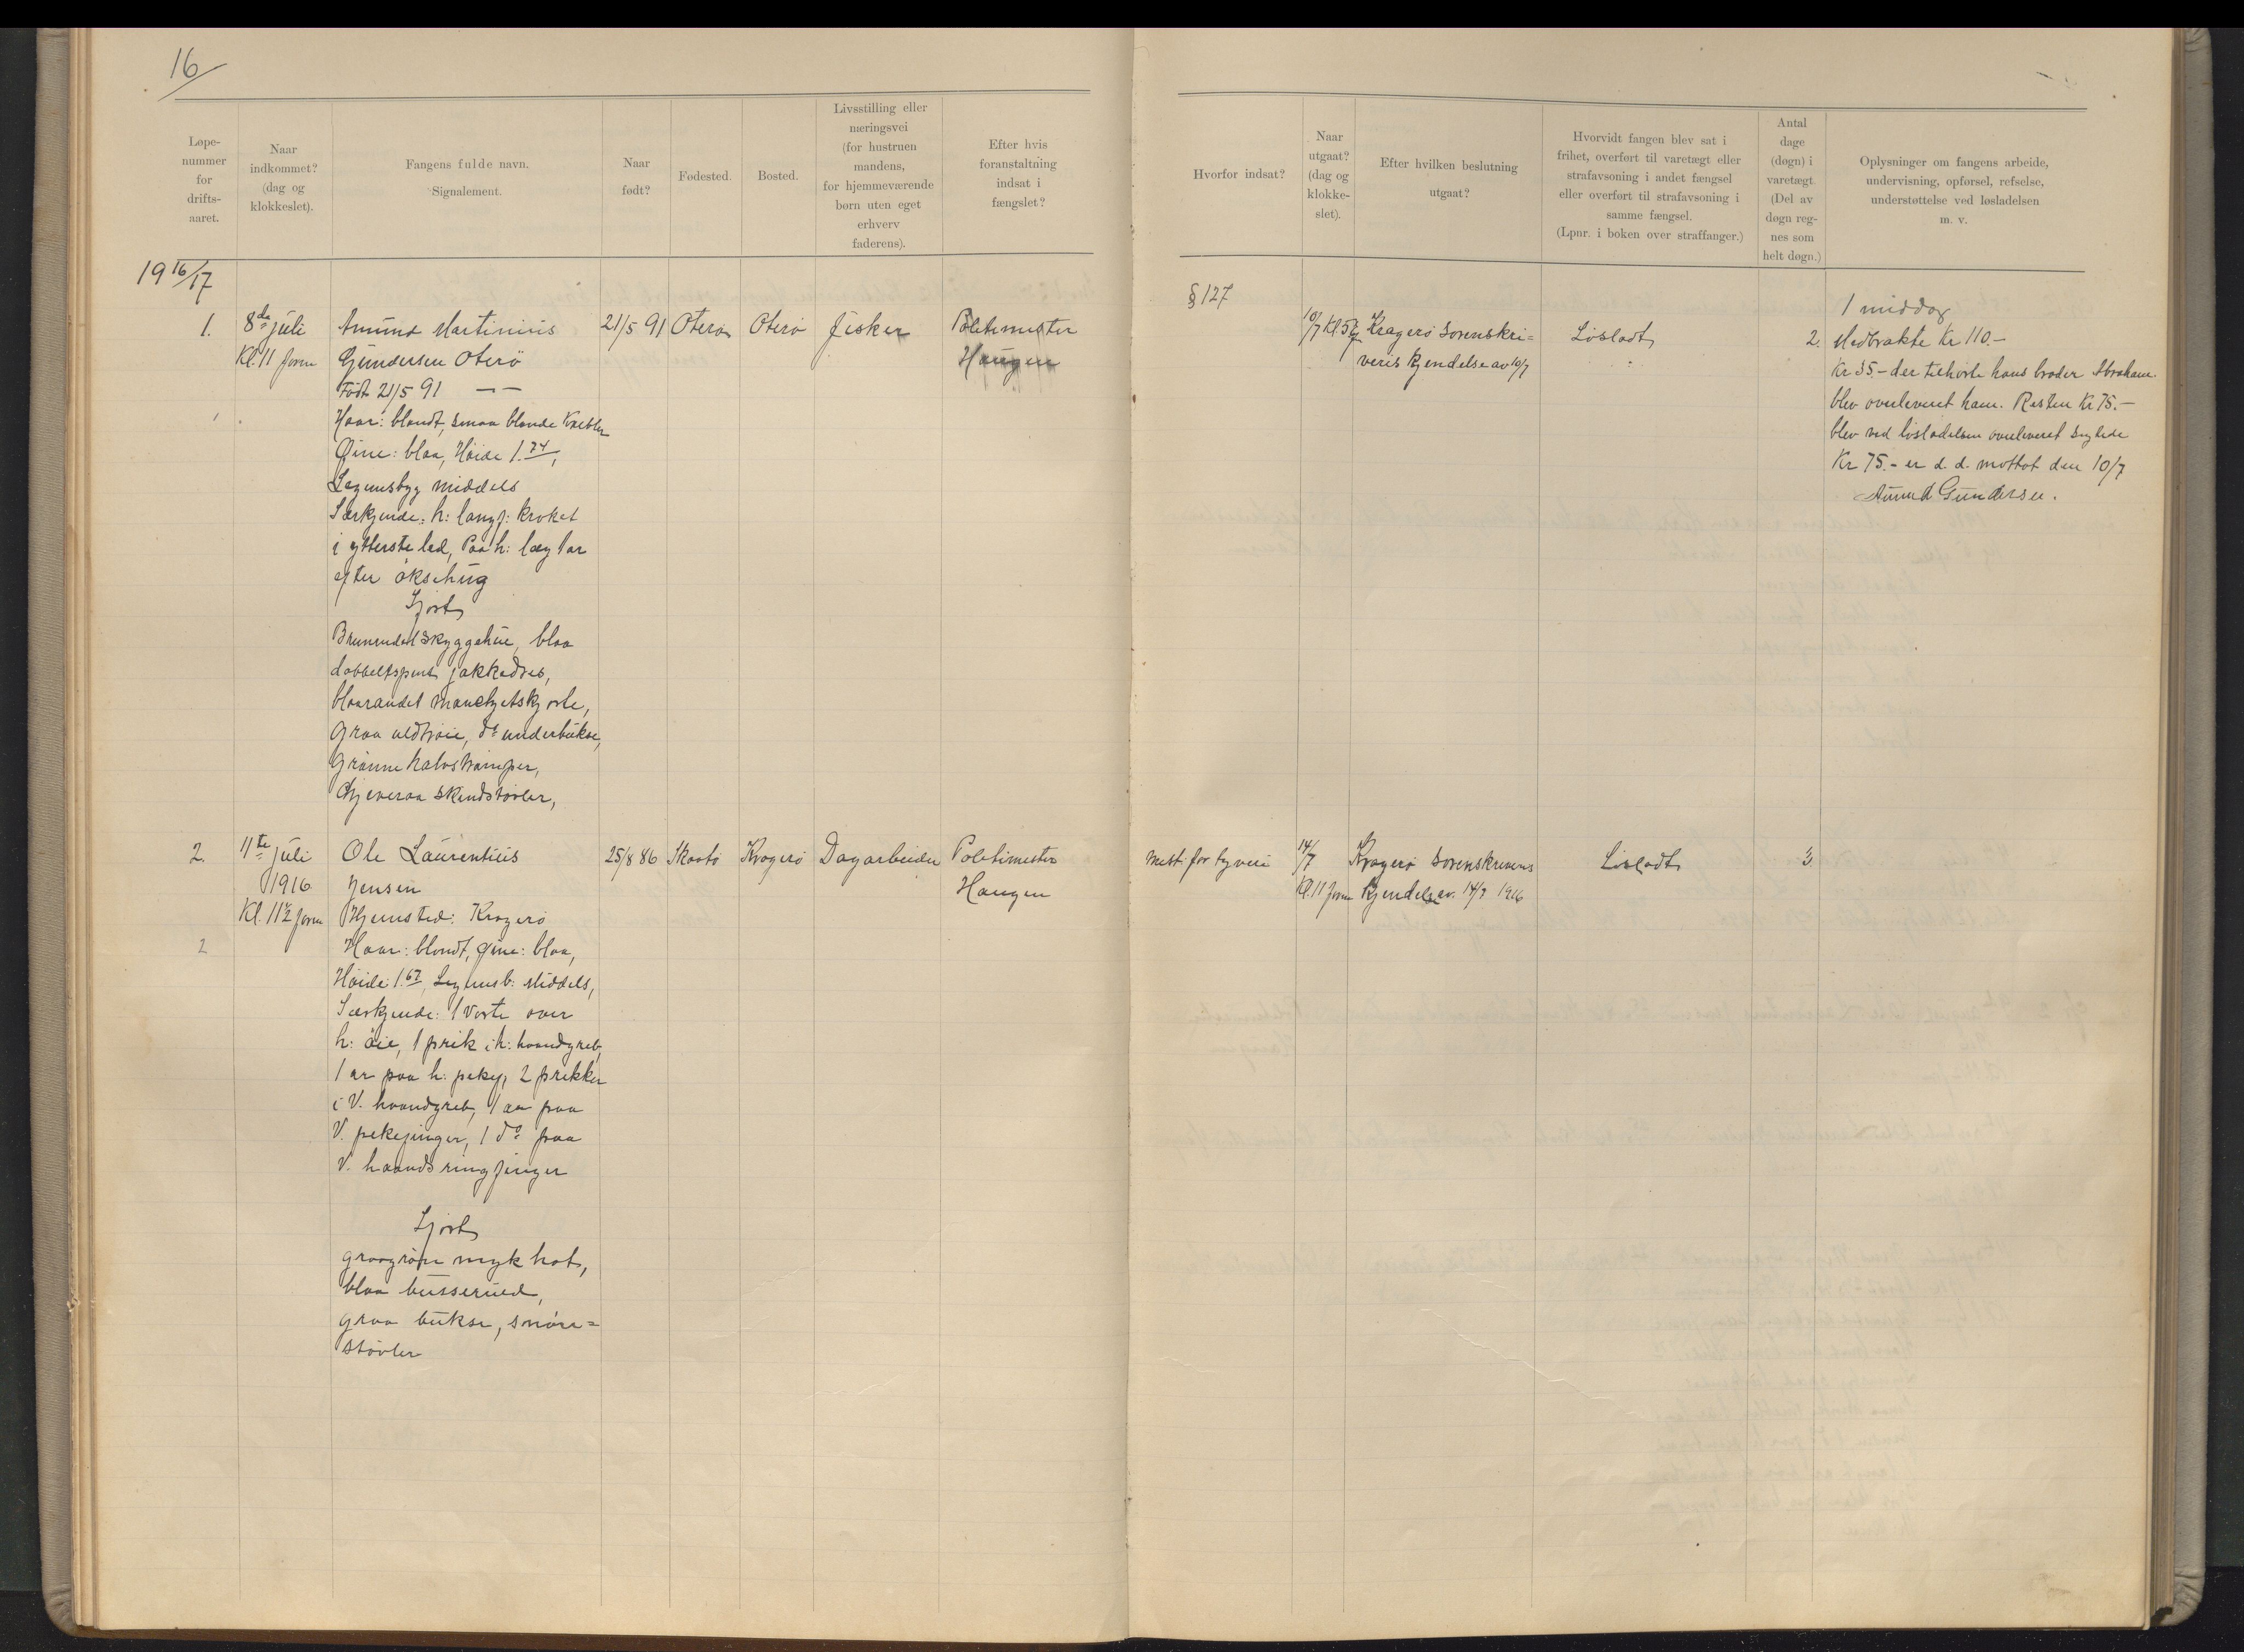 16
Løpe-
nummer
for
drifts-
aaret.
Naar
indkommet?
(dag og
klokkeslet).
Fangens fulde navn.
Signalement.
Naar
født?
Fødested.
Bosted.
Livsstilling eller
næringsvei
(for hustruen
mandens,
for hjemmeværende
børn uten eget
erhverv
faderens).
Efter hvis
foranstaltning
indsat i
fængslet?
Hvorfor indsat?
Naar
utgaat?
(dag og
klokke-
slet).
Efter hvilken beslutning
utgaat?
Hvorvidt fangen blev sat i
frihet, overført til varetægt eller
strafavsoning i andet fængsel
eller overført til strafavsoning i
samme fængsel.
(Lpnr. i boken over straffanger.)
Antal
dage
(døgn) i
varetægt.
(Del av
døgn reg-
nes som
helt døgn.)
Oplysninger om fangens arbeide,
undervisning, opførsel, refselse,
understøttelse ved løsladelsen
m. v.
19 16/17
1.
8de juli
Kl. 11 form
Amund Martinius
Gundersen Oterö
Født 21/5 91 — —
Haar: blondt, smaa blonde
Øine: blaa, Høide 1.74,
Legemsbyg middels
Særkjende: h: langf: kroket
i ytterste led, Paa h: læg 1 ar
efter öksehug
Iført
skyggehue, blaa
dobbeltspent jakkedres,
blaarandet manchetskjorte,
Graa uldtröie, do underbukse,
Grønne halvstrømper,
skindstøvler,
21/5 91
Oterö
Oterö
Fisker
Politimester
Haugen
§ 127
10/7 Kl 5 1/2
Kragerö Sorenskri=
vers kjendelse av 10/7
Løsladt
2.
1 middag
Medbrakte Kr 110.-
Kr 35.- der tilhörte hans broder Abraham
blev overleveret ham. Resten Kr 75.-
blev ved løsladelsen overleveret
Kr 75.- er d. d. mottat den 10/7
Amund Gundersen.
2.
11te juli
1916
Kl. 11 1/2 form
2
Ole Laurentius
Jensen
Hjemsted: Kragerö
Haar: blondt, øine: blaa,
Höide: 1.67, Legemsb: Middels,
Særkjende: 1 Vorte over
h: öie, 1 prik i h: haandgreb,
1 ar paa h: pekef, 2 prikker
i V. haandgreb, 1 ar paa
V. pekefinger, 1 do paa
V. haands ringfinger
Iført
graagrön myk hat,
blaa busserued,
graa bukse, snöre=
støvler
25/8 86
Skaatö
Kragerö
Dagarbeider
Politimester
Haugen
Mist: for tyveri
14/7
Kl. 11 form
Kragerö Sorenskrivers
Kjendelse av. 14/7 1916
Løsladt
3